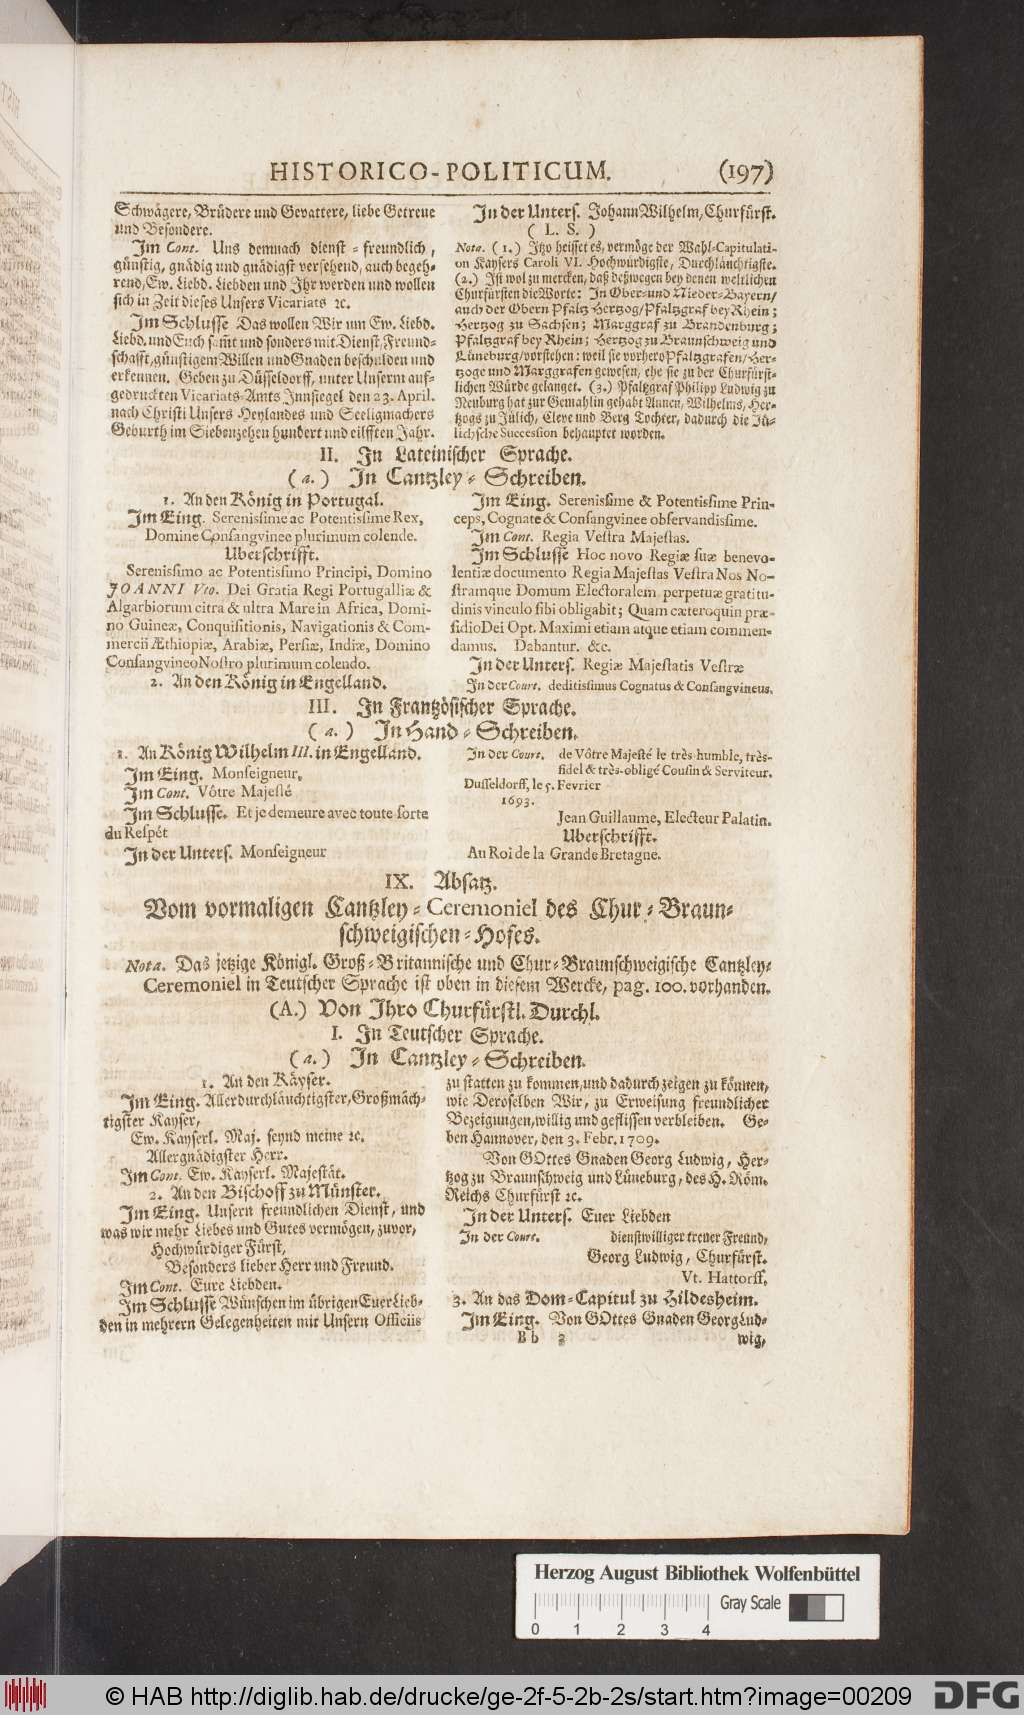 HISTORICO-POLITICUM. (197)
Schwägere, Brüdere und Gevattere, liebe Getreue
und Besondere.
Im Cont. Uns demnach dienst-freundlich,
günstig, gnädig und gnädigst versehend, auch begeh-
rend, Ew. Liebd. Liebden und Ihr werden und wollen
sich in Zeit dieses Unsers Vicariats ꝛc.
Im Schlusse Das wollen Wir um Ew. Liebd.
Liebd. und Euch samt und sonders mit Dienst, Freund-
schafft, günstigem Willen und Gnaden beschulden und
erkennen. Geben zu Düsseldorff, unter Unserm auf-
gedruckten Vicariats-Amts Innsiegel den 23. April.
nach Christi Unsers Heylandes und Seeligmachers
Geburth im Siebenzehen hundert und eilfften Jahr.
In der Unters. Johann Wilhelm, Churfürst.
( L. S. )
Nota. (1.) Itzo heisset es, vermöge der Wahl-Capitulati-
on Kaysers Caroli VI. Hochwürdigste, Durchläuchtigste.
(2.) Ist wol zu mercken, daß deßwegen bey denen weltlichen
Churfürsten die Worte: In Ober-und Nieder-Bayern/
auch der Obern Pfaltz Hertzog/Pfaltzgraf bey Rhein;
Hertzog zu Sachsen; Marggraf zu Brandenburg;
Pfaltzgraf bey Rhein; Hertzog zu Braunschweig und
Lüneburg/vorstehen: weil sie vorhero Pfaltzgrafen/Her-
tzoge und Marggrafen gewesen, ehe sie zu der Churfürst-
lichen Würde gelanget. (3.) Pfaltzgraf Philipp Ludwig zu
Neuburg hat zur Gemahlin gehabt Annen, Wilhelms, Her-
tzogs zu Jülich, Cleve und Berg Tochter, dadurch die Jü-
lichsche Succession behauptet worden.
II. In Lateinischer Sprache.
(a.) In Cantzley-Schreiben.
1. An den König in Portugal.
Im Eing. Serenissime ac Potentissime Rex,
Domine Consangvinee plurimum colende.
Uberschrifft.
Serenissimo ac Potentissimo Principi, Domino
JOANNI Vto. Dei Gratia Regi Portugalliæ &
Algarbiorum citra & ultra Mare in Africa, Domi-
no Guineæ, Conquisitionis, Navigationis & Com-
mercii Æthiopiæ, Arabiæ, Persiæ, Indiæ, Domino
Consangvineo Nostro plurimum colendo.
2. An den König in Engelland.
Im Eing. Serenissime & Potentissime Prin-
ceps, Cognate & Consangvinee observandissime.
Im Cont. Regia Vestra Majestas.
Im Schlusse Hoc novo Regiæ suæ benevo-
lentiæ documento Regia Majestas Vestra Nos No-
stramque Domum Electoralem perpetuæ gratitu-
dinis vinculo sibi obligabit; Quam cæteroquin præ-
sidio Dei Opt. Maximi etiam atque etiam commen-
damus. Dabantur. &c.
In der Unters. Regiæ Majestatis Vestræ
In der Court. deditissimus Cognatus & Consangvineus.
III. In Frantzösischer Sprache.
(a.) In Hand-Schreiben.
1. An König Wilhelm III. in Engelland.
Im Eing. Monseigneur,
Im Cont. Vôtre Majesté
Im Schlusse. Et je demeure avec toute sorte
du Respét
In der Unters. Monseigneur
In der Court. de Vôtre Majesté le très-humble, très-
fidel & très-obligé Cousin & Serviteur.
Dusseldorff, le 5. Fevrier
1693.
Jean Guillaume, Electeur Palatin.
Uberschrifft.
Au Roi de la Grande Bretagne.
IX. Absatz.
Vom vormaligen Cantzley-Ceremoniel des Chur-Braun-
schweigischen-Hofes.
Nota. Das jetzige Königl. Groß-Britannische und Chur-Braunschweigische Cantzley-
Ceremoniel in Teutscher Sprache ist oben in diesem Wercke, pag. 100. vorhanden.
(A.) Von Ihro Churfürstl. Durchl.
I. In Teutscher Sprache.
(a.) In Cantzley-Schreiben.
1. An den Käyser.
Im Eing. Allerdurchläuchtigster, Großmäch-
tigster Kayser,
Ew. Kayserl. Maj. seynd meine ꝛc.
Allergnädigster Herr.
Im Cont. Ew. Kayserl. Majestät.
2. An den Bischoff zu Münster.
Im Eing. Unsern freundlichen Dienst, und
was wir mehr Liebes und Gutes vermögen, zuvor,
Hochwürdiger Fürst,
Besonders lieber Herr und Freund.
Im Cont. Eure Liebden.
Im Schlusse Wünschen im übrigen Euer Lieb-
den in mehrern Gelegenheiten mit Unsern Officiis
zu statten zu kommen, und dadurch zeigen zu können,
wie Deroselben Wir, zu Erweisung freundlicher
Bezeigungen, willig und geflissen verbleiben. Ge-
ben Hannover, den 3. Febr. 1709.
Von GOttes Gnaden Georg Ludwig, Her-
tzog zu Braunschweig und Lüneburg, des H. Röm.
Reichs Churfürst ꝛc.
In der Unters. Euer Liebden
In der Court. dienstwilliger treuer Freund,
Georg Ludwig, Churfürst.
Vt. Hattorff.
3. An das Dom-Capitul zu Hildesheim.
Im Eing. Von GOttes Gnaden Georg Lud-
Bb 3 wig,
Herzog August Bibliothek Wolfenbüttel
0 1 2 3 4 Gray Scale
© HAB http://diglib.hab.de/drucke/ge-2f-5-2b-2s/start.htm?image=00209 DFG